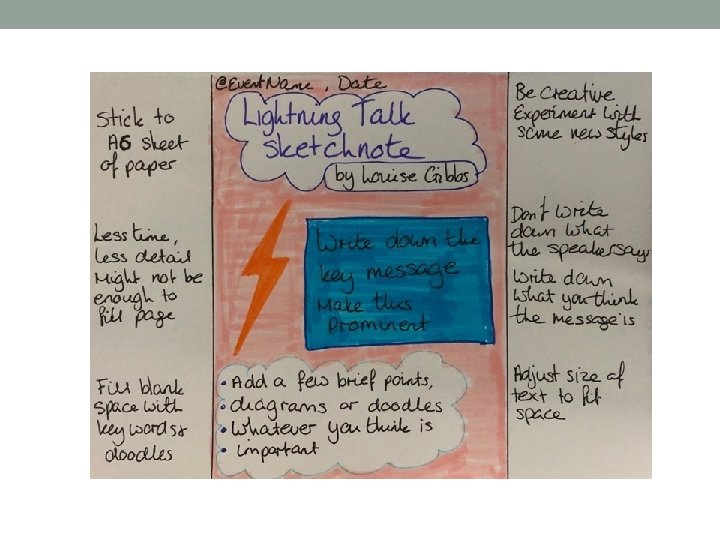 @EventName, Date
Lightning Talk
Sketchnote
by Louise Gibbs
Stick to
A6 sheet
of paper
Less time,
less detail
Might not be
enough to
fill page
Fill blank
space with
key words &
doodles
Write down the
key message
Make this
Prominent
• Add a few brief points,
• diagrams or doodles
• Whatever you think is
• important
Be Creative
Experiment with
some new styles
Don't write
down what
the speaker says
Write down
what you think
the message is
Adjust size of
text to fit
space